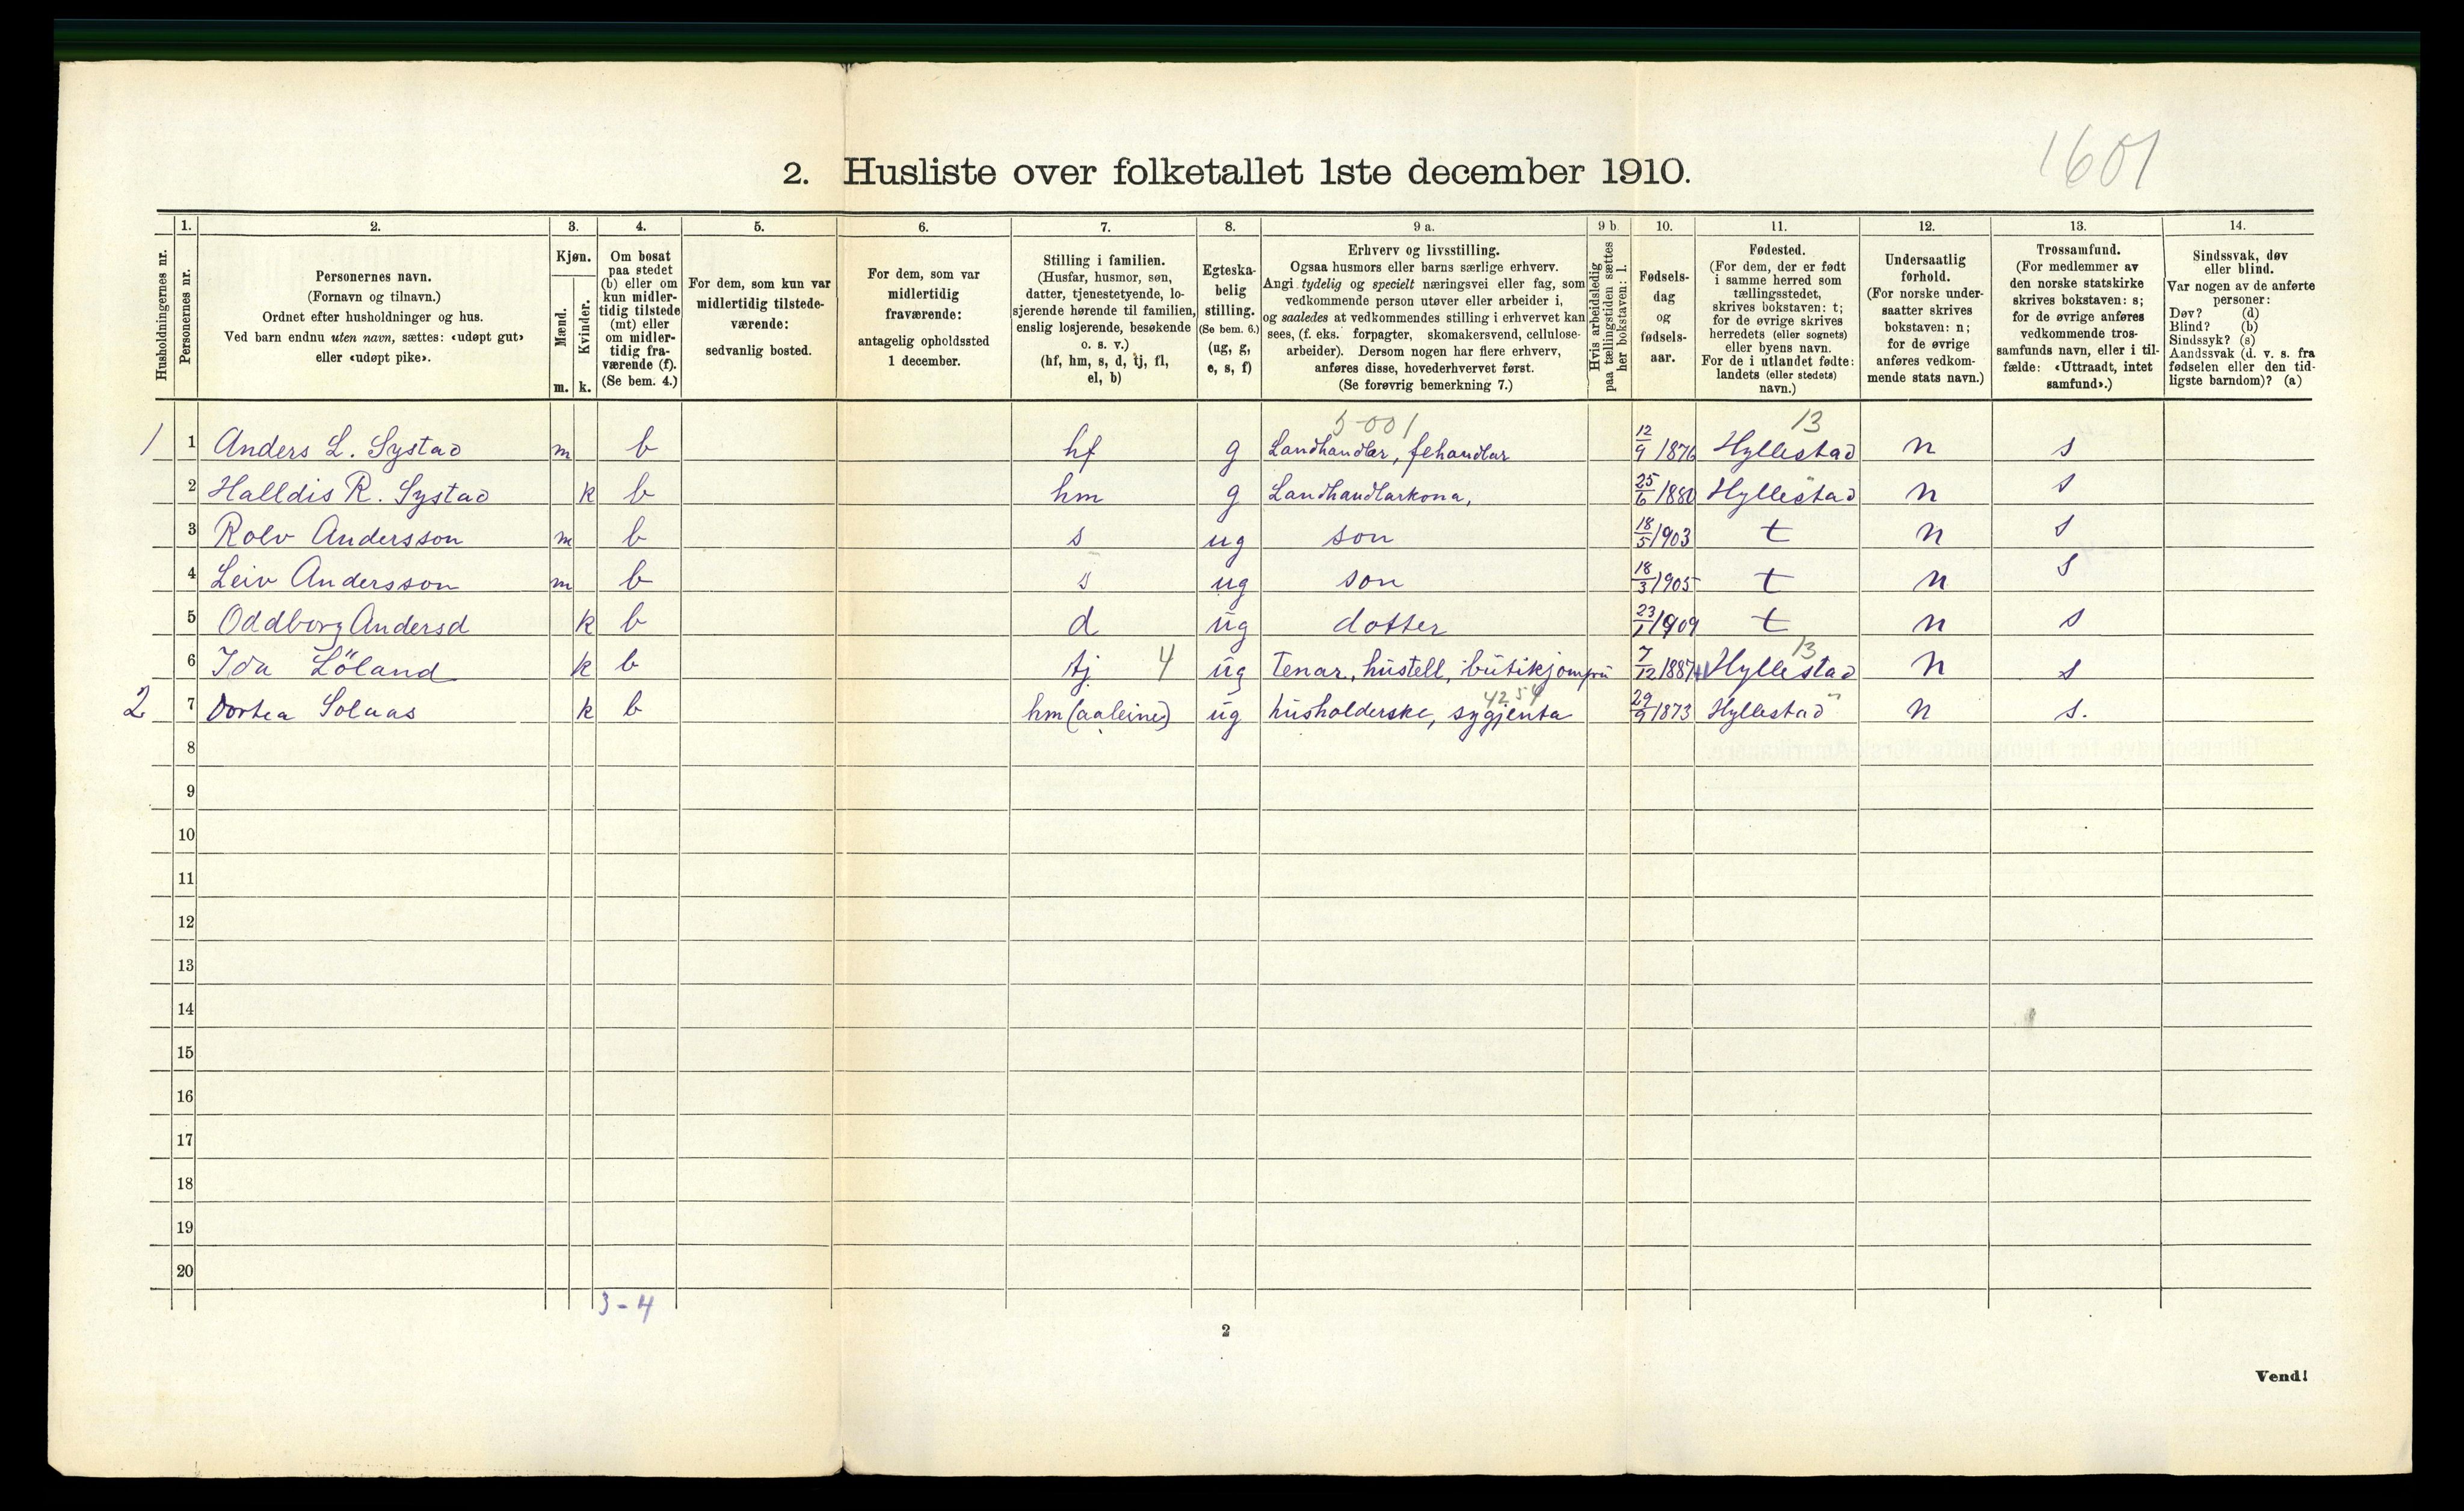 1601
2. Husliste over folketallet 1ste december 1910.
Husholdningernes nr.
1. Personernes nr.
2. Personernes navn.
(Fornavn og tilnavn.)
Ordnet efter husholdninger og hus.
Ved barn endnu uten navn, sættes: «udøpt gut»
eller «udøpt pike».
3. Kjøn.
Mænd. m.
Kvinder. k.
4. Om bosat
paa stedet
(b) eller om
kun midler-
tidig tilstede
(mt) eller
om midler-
tidig fra-
værende (f).
(Se bem. 4.)
5. For dem, som kun var
midlertidig tilstede-
værende:
sedvanlig bosted.
6. For dem, som var
midlertidig
fraværende:
antagelig opholdssted
1 december.
7. Stilling i familien.
(Husfar, husmor, søn,
datter, tjenestetyende, lo-
sjerende hørende til familien,
enslig losjerende, besøkende
o. s. v.)
(hf, hm, s, d, tj, fl,
el, b)
8. Egteska-
belig
stilling.
(Se bem. 6.)
(ug, g,
e, s, f)
9 a. Erhverv og livsstilling.
Ogsaa husmors eller barns særlige erhverv.
Angi tydelig og specielt næringsvei eller fag, som
vedkommende person utøver eller arbeider i,
og saaledes at vedkommendes stilling i erhvervet kan
sees, (f. eks. forpagter, skomakersvend, cellulose-
arbeider). Dersom nogen har flere erhverv,
anføres disse, hovederhvervet først.
(Se forøvrig bemerkning 7.)
9 b. Hvis arbeidsledig
paa tællingstiden sættes
her bokstaven: l.
10. Fødsels-
dag
og
fødsels-
aar.
11. Fødested.
(For dem, der er født
i samme herred som
tællingsstedet,
skrives bokstaven: t;
for de øvrige skrives
herredets (eller sognets)
eller byens navn.
For de i utlandet fødte:
landets (eller stedets)
navn.)
12. Undersaatlig
forhold.
(For norske under-
saatter skrives
bokstaven: n;
for de øvrige
anføres vedkom-
mende stats navn.)
13. Trossamfund.
(For medlemmer av
den norske statskirke
skrives bokstaven: s;
for de øvrige anføres
vedkommende tros-
samfunds navn, eller i til-
fælde: «Uttraadt, intet
samfund».)
14. Sindssvak, døv
eller blind.
Var nogen av de anførte
personer:
Døv? (d)
Blind? (b)
Sindssyk? (s)
Aandssvak (d. v. s. fra
fødselen eller den tid-
ligste barndom)? (a)
5-001 13
1 1 Anders L. Systad m b hf g Landhandlar, fehandlar 12/9 1876 Hyllestad n s
2 Halldis R. Systad k b hm g Landhandlarkona, 25/6 1880 Hyllestad n s
3 Rolv Andersson m b s ug son 18/5 1903 t n s
4 Leiv Andersson m b s ug son 18/3 1905 t n s
5 Oddborg Andersd k b d ug dotter 23/1 1909 t n s
13
6 Ida Löland k b tj 4 ug Tenar, hustell, butikjomfru 7/12 1887 Hyllestad n s
4254
2 7 Dortea Solaas k b hm (aaleine) ug husholderske, sygjenta 29/9 1873 Hyllestad n s.
8
9
10
11
12
13
14
15
16
17
18
19
20
3-4
2
Vend!